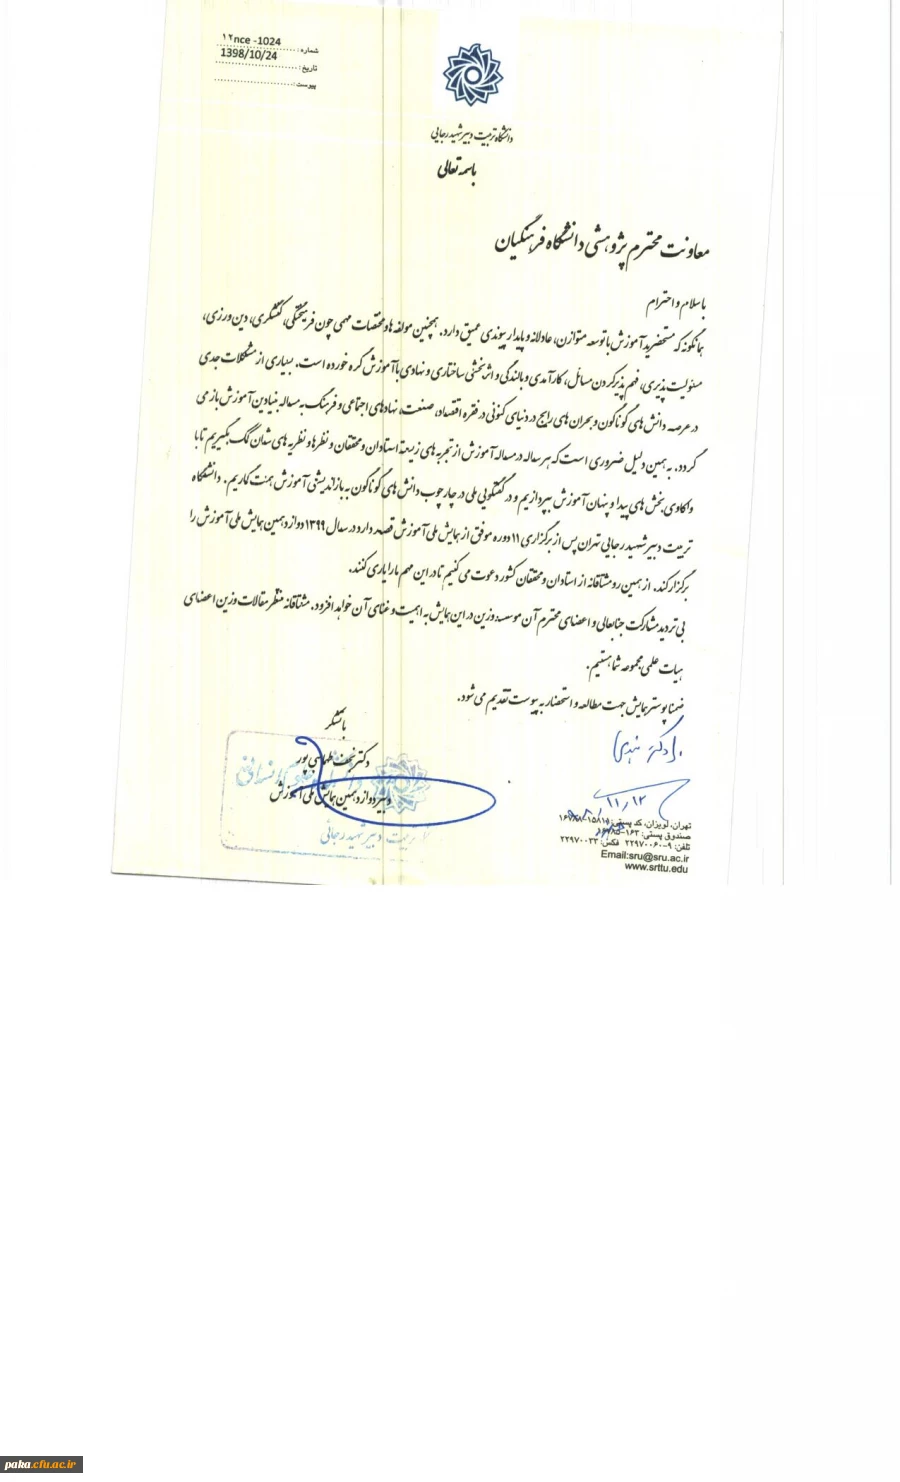 شماره: ۱۲nce -1024
تاریخ: 1398/10/24
پیوست:
دانشگاه تربیت دبیر شهید رجایی
باسمه تعالی
معاونت محترم پژوهشی دانشگاه فرهنگیان
باسلام و احترام
همانگونه که مستحضرید آموزش با توسعه متوازن، عادلانه و پایدار پیوندی عمیق دارد. همچنین مولفه ها و مختصات مهمی چون فرهیختگی، کنشگری، دین ورزی،
مسئولیت پذیری، فهم پذیر کردن مسائل، کارآمدی و بالندگی و اثربخشی ساختاری و نهادی با آموزش گره خورده است. بسیاری از مشکلات جدی
در عرصه دانش های گوناگون و بحران های رایج در دنیای کنونی در فقره اقتصاد، صنعت، نهادهای اجتماعی و فرهنگ به مساله بنیادین آموزش باز می
گردد. به همین دلیل ضروری است که هر ساله در مساله آموزش از تجربه های زیسته استادان و محققان و نظرها و نظریه های شان کمک بگیریم تا با
واکاوی بخش های پیدا و پنهان آموزش بپردازیم و در گفتگویی ملی در چارچوب دانش های گوناگون به بازاندیشی آموزش همت گماریم. دانشگاه
تربیت دبیر شهید رجایی تهران پس از برگزاری ۱۱ دوره موفق از همایش ملی آموزش قصد دارد در سال ۱۳۹۹ دوازدهمین همایش ملی آموزش را
برگزار کند. از همین رو مشتاقانه از استادان و محققان کشور دعوت می کنیم تا در این مهم ما را یاری کنند.
بی تردید مشارکت جنابعالی و اعضای محترم آن موسسه وزین در این همایش به اهمیت و غنای آن خواهد افزود. مشتاقانه منتظر مقالات وزین اعضای
هیات علمی مجموعه شما هستیم.
ضمنا پوستر همایش جهت مطالعه و استحضار به پیوست تقدیم می شود.
باتشکر
دکتر طهماسبی پور
دبیر دوازدهمین همایش ملی آموزش
تربیت دبیر شهید رجائی
۱۱/۱۲
تهران، لویزان، کد پستی:
صندوق پستی:
تلفن: ۹-۲۲۹۷۰۰۶۰ فکس: ۲۲۹۷۰۰۳۳
Email:sru@sru.ac.ir
www.srttu.edu
paka.cfu.ac.ir